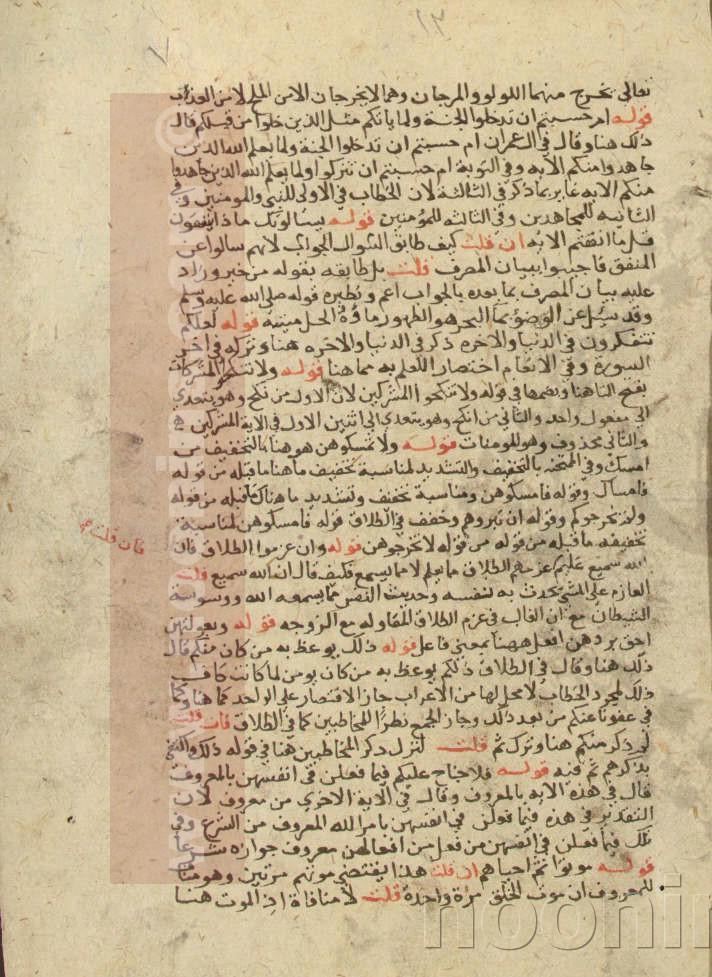 ١٣
٧
تعالى يخرج منهما اللولو والمرجان وهما لا يخرجان الا من الملح لا من العذاب
قوله ام حسبتم ان تدخلوا الجنة ولما ياتكم مثل الذين خلوا من قبلكم قال
ذلك هنا وقال في ال عمران ام حسبتم ان تدخلوا الجنة ولما يعلم الله الذين
جاهدوا منكم الايه وفي التوبة ام حسبتم ان تتركوا ولما يعلم الله الذين جاهدوا
منكم الايه غاير بما ذكر في الثالثة لان الخطاب في الاولى للنبي والمومنين وفي
الثانيه للمجاهدين وفي الثالثه للمؤمنين قوله يسالونك ماذا ينفقون
قل ما انفقتم الايه ان قلت كيف طابق السوال الجواب لانهم سالوا عن
المنفق فاجيبوا ببيان المصرف قلت بل طابقه بقوله من خير وزاد
عليه بيان المصرف بما بعده بالجواب اعم ونظيره قوله صلى الله عليه وسلم
وقد سئل عن الوضوء بماء البحر هو الطهور ماؤه الحل ميتته قوله لعلكم
تتفكرون في الدنيا والاخره ذكر في الدنيا والاخره هنا وتركه في اخر
السورة وفي الانعام اختصارا للعلم به مما هنا قوله ولا تنكحوا المشركات
بفتح التا هنا وبضمها في قوله ولا تنكحوا المشركين لان الاول من نكح وهو يتعدى
الى مفعول واحد والثاني من انكح وهو يتعدى الى اثنين الاول في الاية المشركين
والثاني محذوف وهو المومنات قوله ولا تمسكوهن هو هنا بالتخفيف من
امسك وفي الممتحنه بالتخفيف والتشديد لمناسبة تخفيف ما هنا ما قبله من قوله
فامساك وقوله فامسكوهن ومناسبة تخفيف وتشديد ما هناك ما قبله من قوله
ولم يخرجوكم وقوله ان تبروهم وخفف في الطلاق قوله فامسكوهن لمناسبة
تخفيفه ما قبله من قوله من قوله لا تخرجوهن قوله وان عزموا الطلاق فان
الله سميع عليم عزمهم الطلاق مما يعلم لا مما يسمع فكيف قال ان الله سميع قلت
فان قلت صح
العازم على الشي يحدث به نفسه وحديث النفس مما يسمعه الله ووسوسة
الشيطان مع ان الغالب في عزم الطلاق المقاوله مع الزوجه قوله وبعولتهن
احق بردهن افعل ههنا بمعنى فاعل قوله ذلك يوعظ به من كان منكم قال
ذلك هنا وقال في الطلاق ذلكم يوعظ به من كان يومن لما كانت كاف
ذلك لمجرد الخطاب لا محل لها من الاعراب جاز الاقتصار على الواحد كما هنا وكما
في عفونا عنكم من بعد ذلك وجاز الجمع نظرا للمخاطبين كما في الطلاق فان قلت
لم ذكر منكم هنا وترك ثم قلت لترك ذكر المخاطبين هنا في قوله ذلك واكتفى
بذكرهم ثم فيه قوله فلا جناح عليكم فيما فعلن في انفسهن بالمعروف
قال في هذه الايه بالمعروف وقال في الاية الاخرى من معروف لان
التقدير في هذه فيما فعلن في انفسهن بامر الله المعروف من الشرع وفي
تلك فيما فعلن في انفسهن من فعل من افعالهن معروف جوازه شرعا
قوله موتوا ثم احياهم ان قلت هذا يقتضي موتهم مرتين وهو مناف
للمعروف ان موت الخلق مرة واحدة قلت لا منافاة اذ الموت هنا
noonin